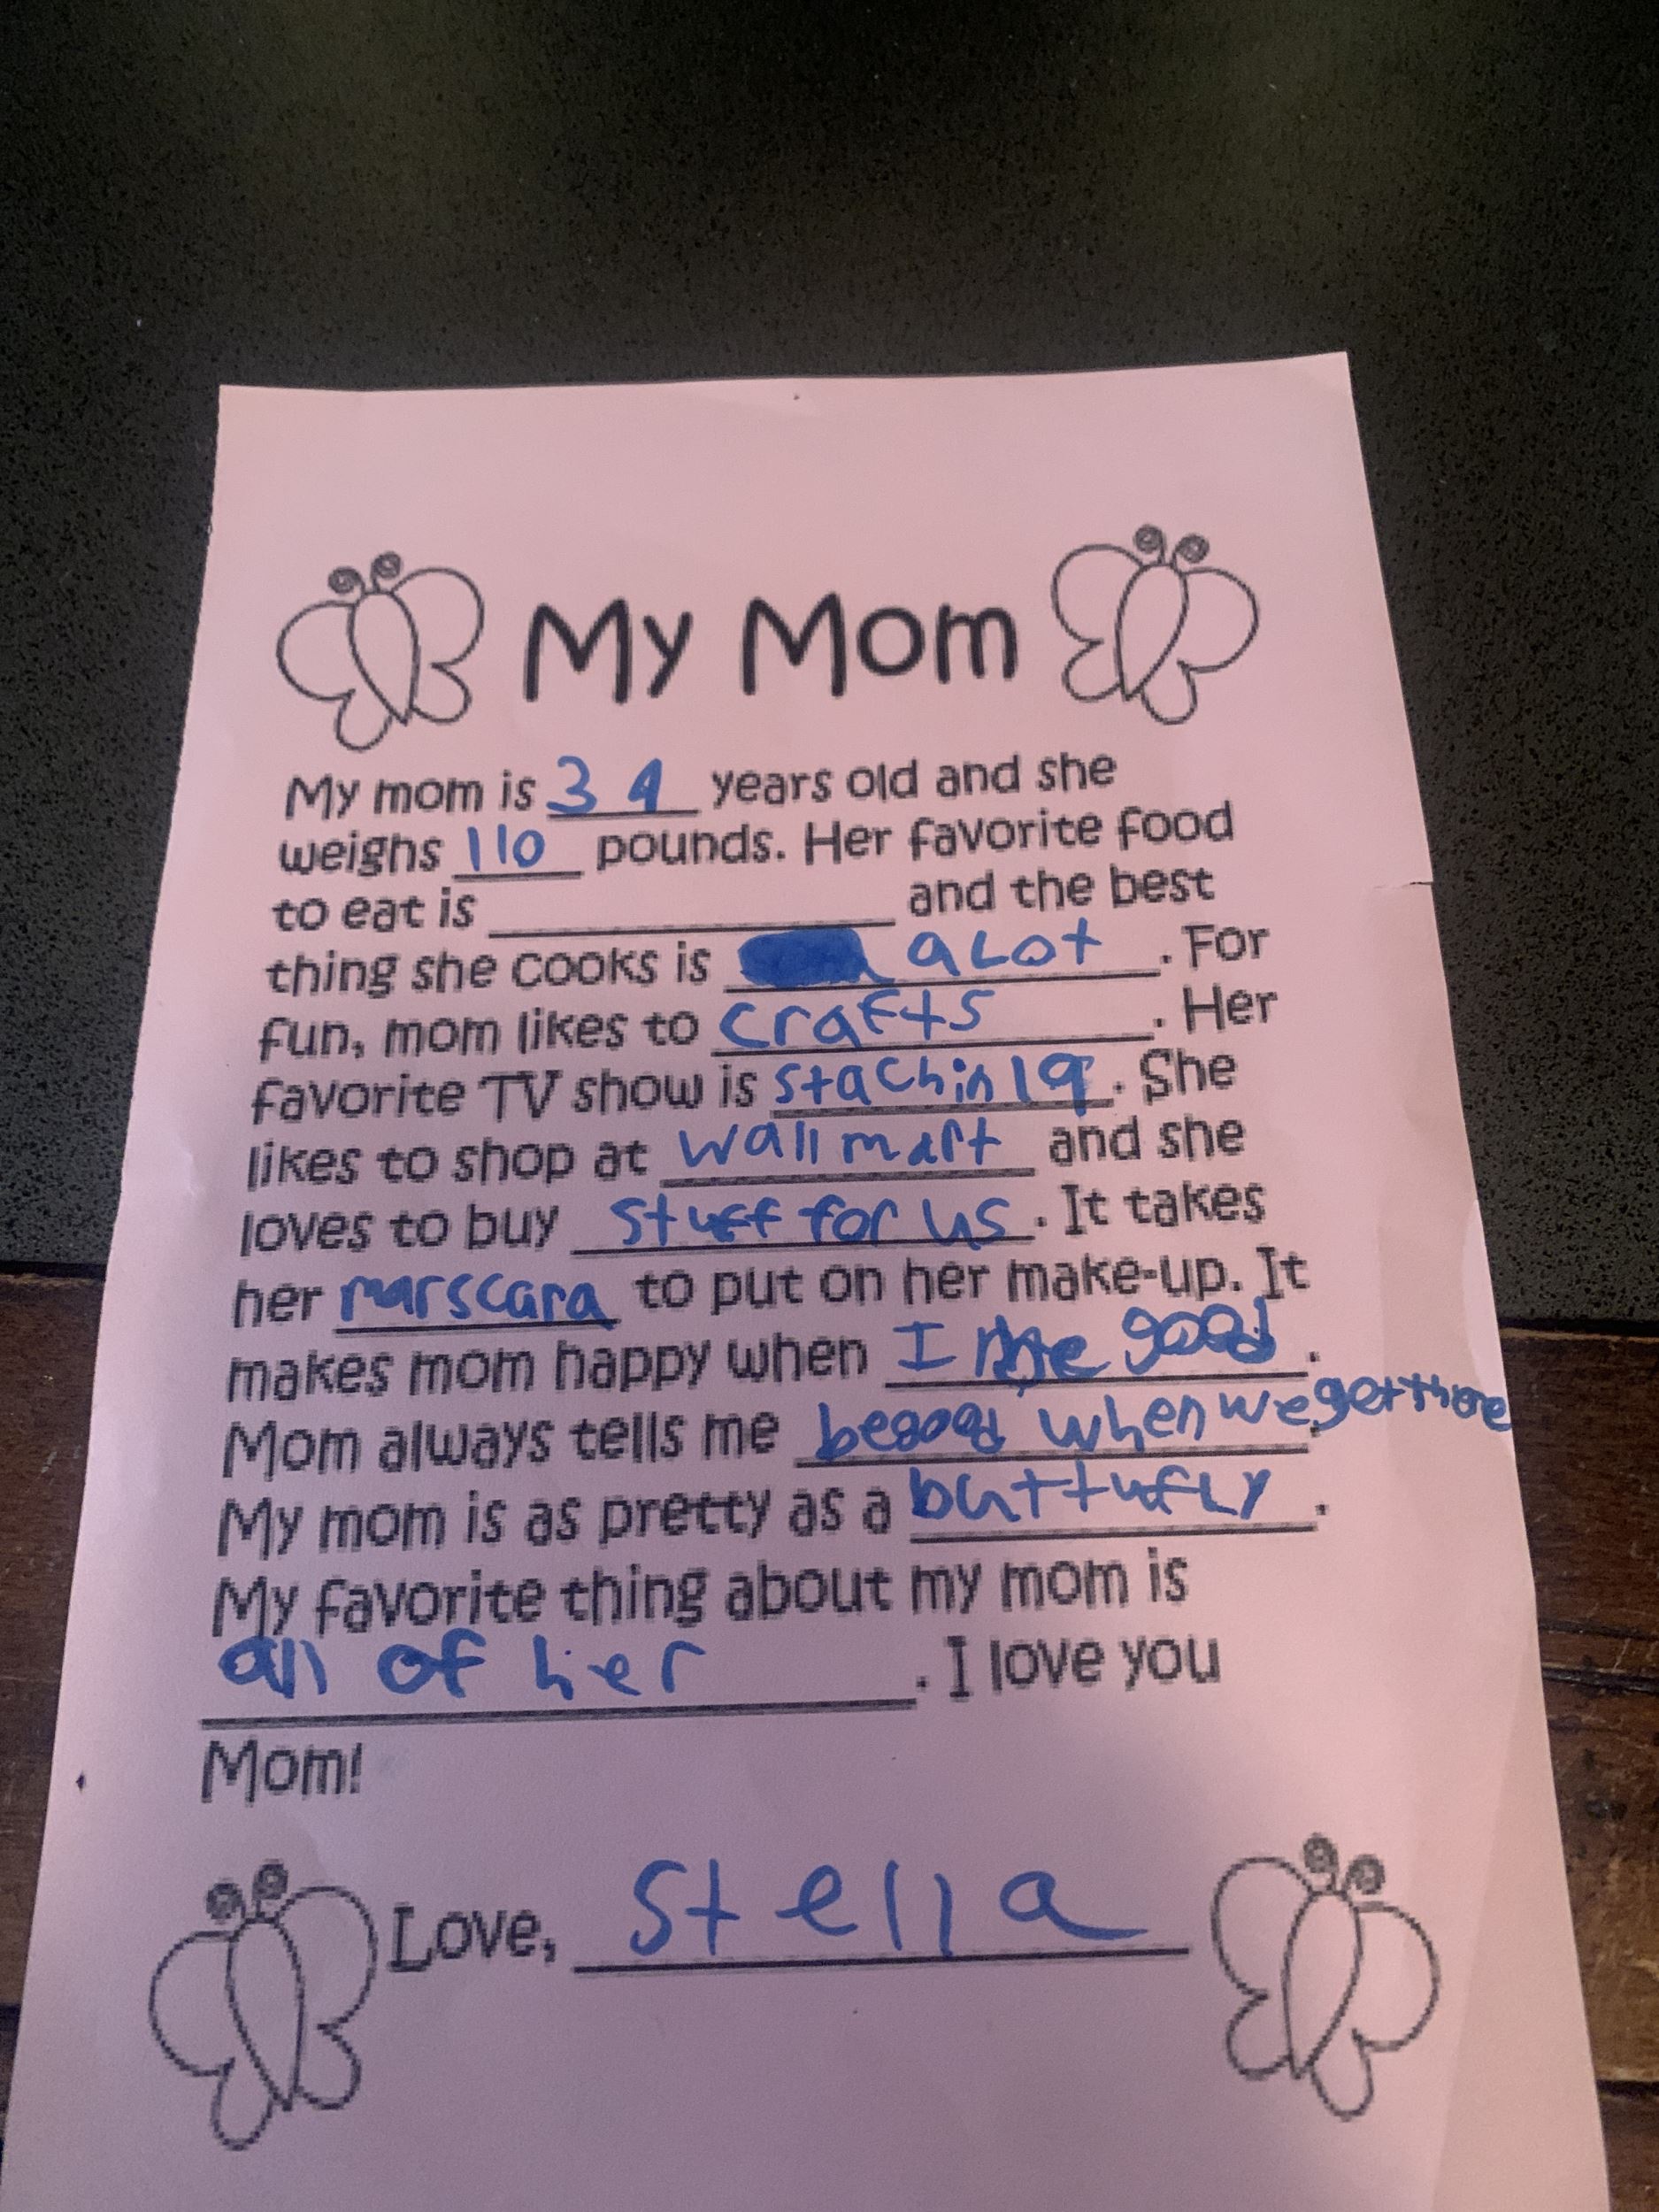 My Mom
My mom is 34 years old and she
weighs 110 pounds. Her favorite food
to eat is ____________ and the best
thing she cooks is aLot. For
fun, mom likes to crafts. Her
favorite TV show is stachin 19. She
likes to shop at wallmart and she
loves to buy stuff for us. It takes
her marscara to put on her make-up. It
makes mom happy when I good.
Mom always tells me begood when we getthere.
My mom is as pretty as a buttufLy.
My favorite thing about my mom is
all of her. I love you
Mom!
Love, Stella